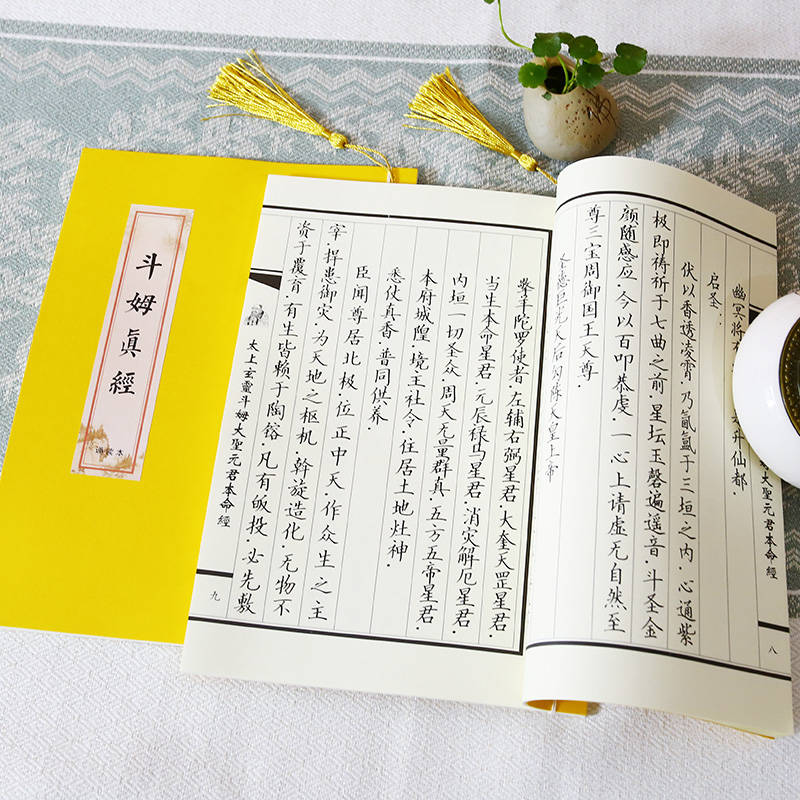 斗姆眞經
诵读本
大聖元君本命經
八
幽冥将
升仙都.
启圣：
伏以香透凌霄.乃氤氲于三垣之内.心通紫
极即祷祈于七曲之前.星坛玉磬遍遥音.斗圣金
颜随感应.今以百叩恭虔.一心上请虚无自然至
尊三宝周御国王天尊.
巨光天后勾陈天皇上帝
擎羊陀罗使者.左辅右弼星君.大奎天罡星君.
当生本命星君.元辰禄马星君.消灾解厄星君.
内垣一切圣众.周天无量群真.五方五帝星君.
本府城隍.境主社令.住居土地灶神.
悉仗真香.普同供养.
臣闻尊居北极.位正中天.作众生之主
宰.捍患御灾.为天地之枢机.斡旋造化.无物不
资于覆育.有生皆赖于陶镕.凡有皈投.必先敷
太上玄靈斗姆大聖元君本命經
九